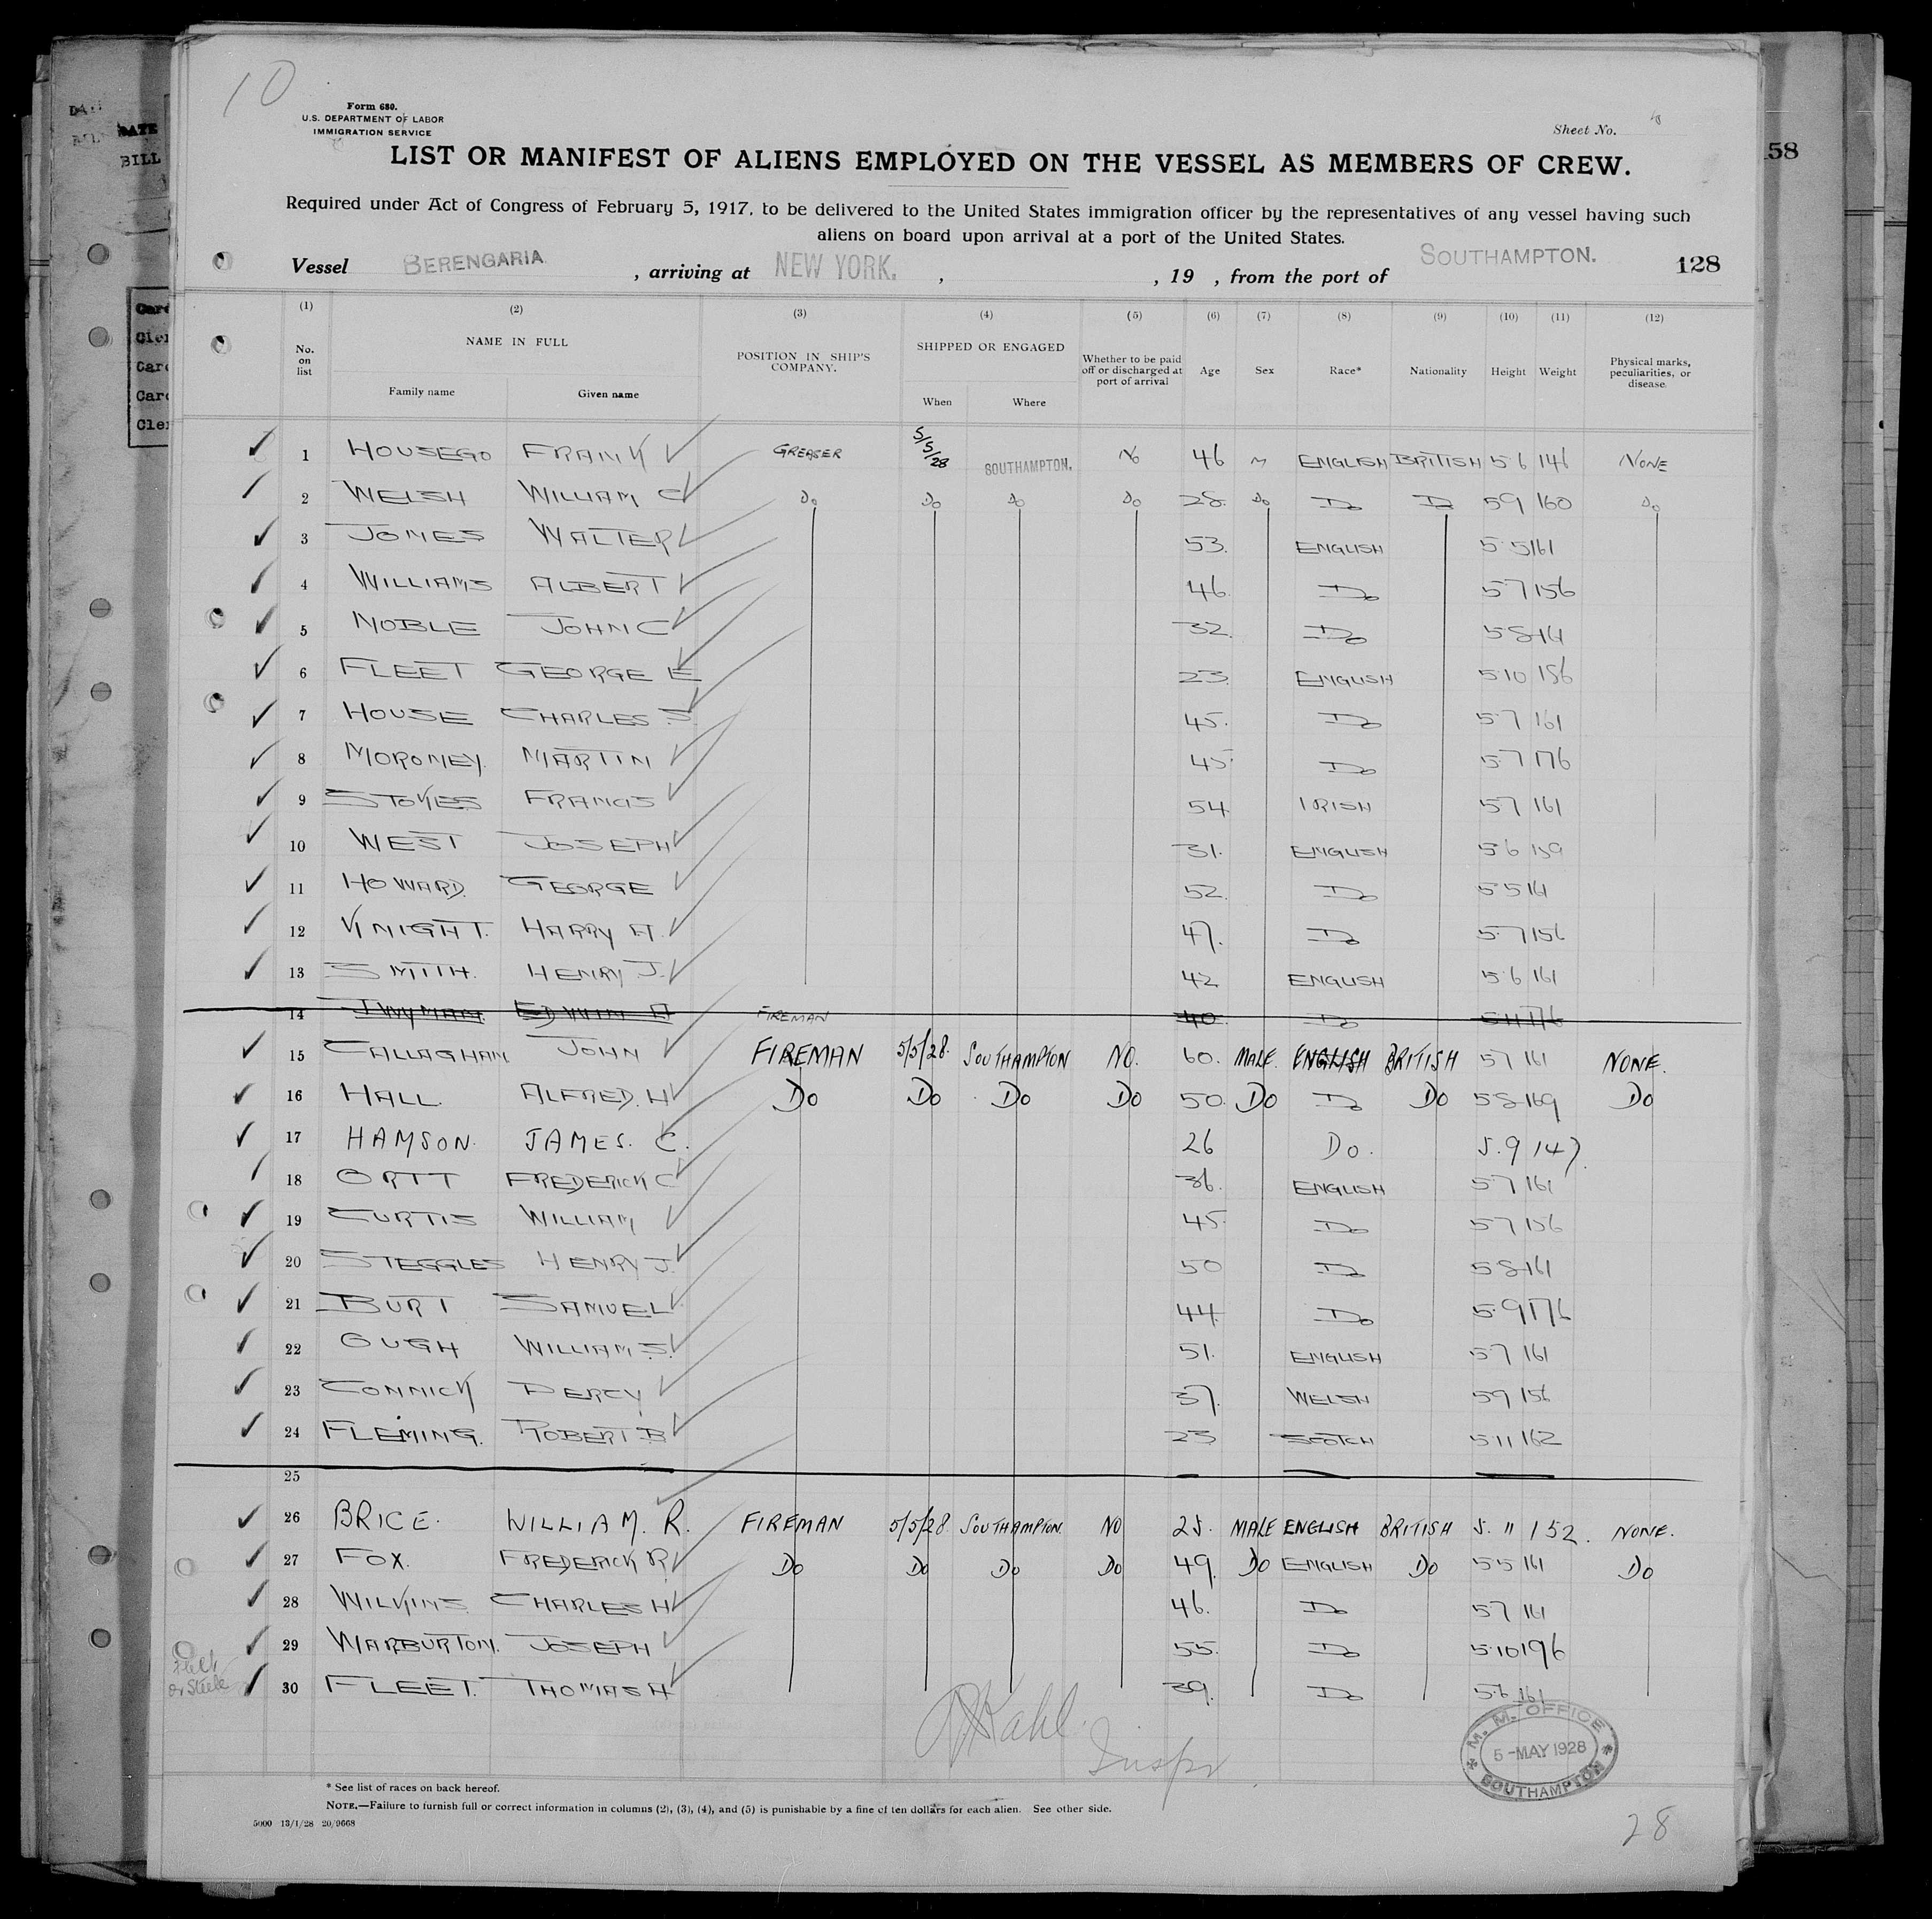 10
Form 680.
U.S. DEPARTMENT OF LABOR
IMMIGRATION SERVICE
Sheet No.
LIST OR MANIFEST OF ALIENS EMPLOYED ON THE VESSEL AS MEMBERS OF CREW.
Required under Act of Congress of February 5, 1917, to be delivered to the United States immigration officer by the representatives of any vessel having such
aliens on board upon arrival at a port of the United States.
Vessel BERENGARIA , arriving at NEW YORK. , , 19 , from the port of SOUTHAMPTON. 128
58
DATE
BILL
(1) (2) (3) (4) (5) (6) (7) (8) (9) (10) (11) (12)
No. on list NAME IN FULL POSITION IN SHIP'S COMPANY. SHIPPED OR ENGAGED Whether to be paid off or discharged at port of arrival Age Sex Race* Nationality Height Weight Physical marks, peculiarities, or disease.
Family name Given name When Where
1 HOUSEGO FRANK GREASER 5/5/28 SOUTHAMPTON. No 46 M ENGLISH BRITISH 5 6 146 NONE
2 WELSH WILLIAM C Do Do Do Do 28. Do Do Do 5 9 160 Do
3 JONES WALTER 53. ENGLISH 5 5 161
4 WILLIAMS ALBERT 46. Do 5 7 156
5 NOBLE JOHN C 32. Do 5 8
6 FLEET GEORGE E 23. ENGLISH 5 10 186
7 HOUSE CHARLES S. 45. Do 5 7 161
8 MORONEY. MARTIN 45. Do 5 7 176
9 STOKES FRANCIS 54. IRISH 5 7 161
10 WEST JOSEPH 31. ENGLISH 5 6 159
11 HOWARD. GEORGE 52. Do 5 5 161
12 KNIGHT. HARRY A. 47. Do 5 7 156
13 SMITH. HENRY J. 42 ENGLISH 5 6 161
14 EDWIN A FIREMAN 40. Do 5 11 176
15 CALLAGHAN JOHN FIREMAN 5/5/28. SOUTHAMPTON NO. 60. MALE. ENGLISH BRITISH 5 7 161 NONE.
16 HALL. ALFRED. H Do Do Do Do 50. Do Do Do 5 8 169 Do
17 HAMSON. JAMES. C. 26 Do. 5. 9 147
18 ORTT FREDERICK C 36. ENGLISH 5 7 161
19 CURTIS WILLIAM 45. Do 5 7 156
20 STEGGLES HENRY J. 50 Do 5 8 161
21 BURT SAMUEL 44. Do 5. 9 176
22 GUGH WILLIAM S. 51. ENGLISH 5 7 161
23 CONNICK PERCY 37. WELSH 5 9 156
24 FLEMING. ROBERT B 23 SCOTCH 5 11 162
25
26 BRICE. WILLIAM. R. FIREMAN 5/5/28 SOUTHAMPTON. NO 25. MALE ENGLISH BRITISH 5. 11 152. NONE.
27 FOX. FREDERICK R Do Do Do Do 49. Do ENGLISH Do 5 5 161 Do
28 WILKINS. CHARLES H 46. Do 5 7 161
29 WARBURTON. JOSEPH 55. Do 5 10 196
30 FLEET. THOMAS H 39. Do 5 6 161
Kahl.
Inspr
M. M. OFFICE
5-MAY 1928
SOUTHAMPTON
* See list of races on back hereof.
NOTE.—Failure to furnish full or correct information in columns (2), (3), (4), and (5) is punishable by a fine of ten dollars for each alien. See other side.
5000 13/1/28 20/9668
28